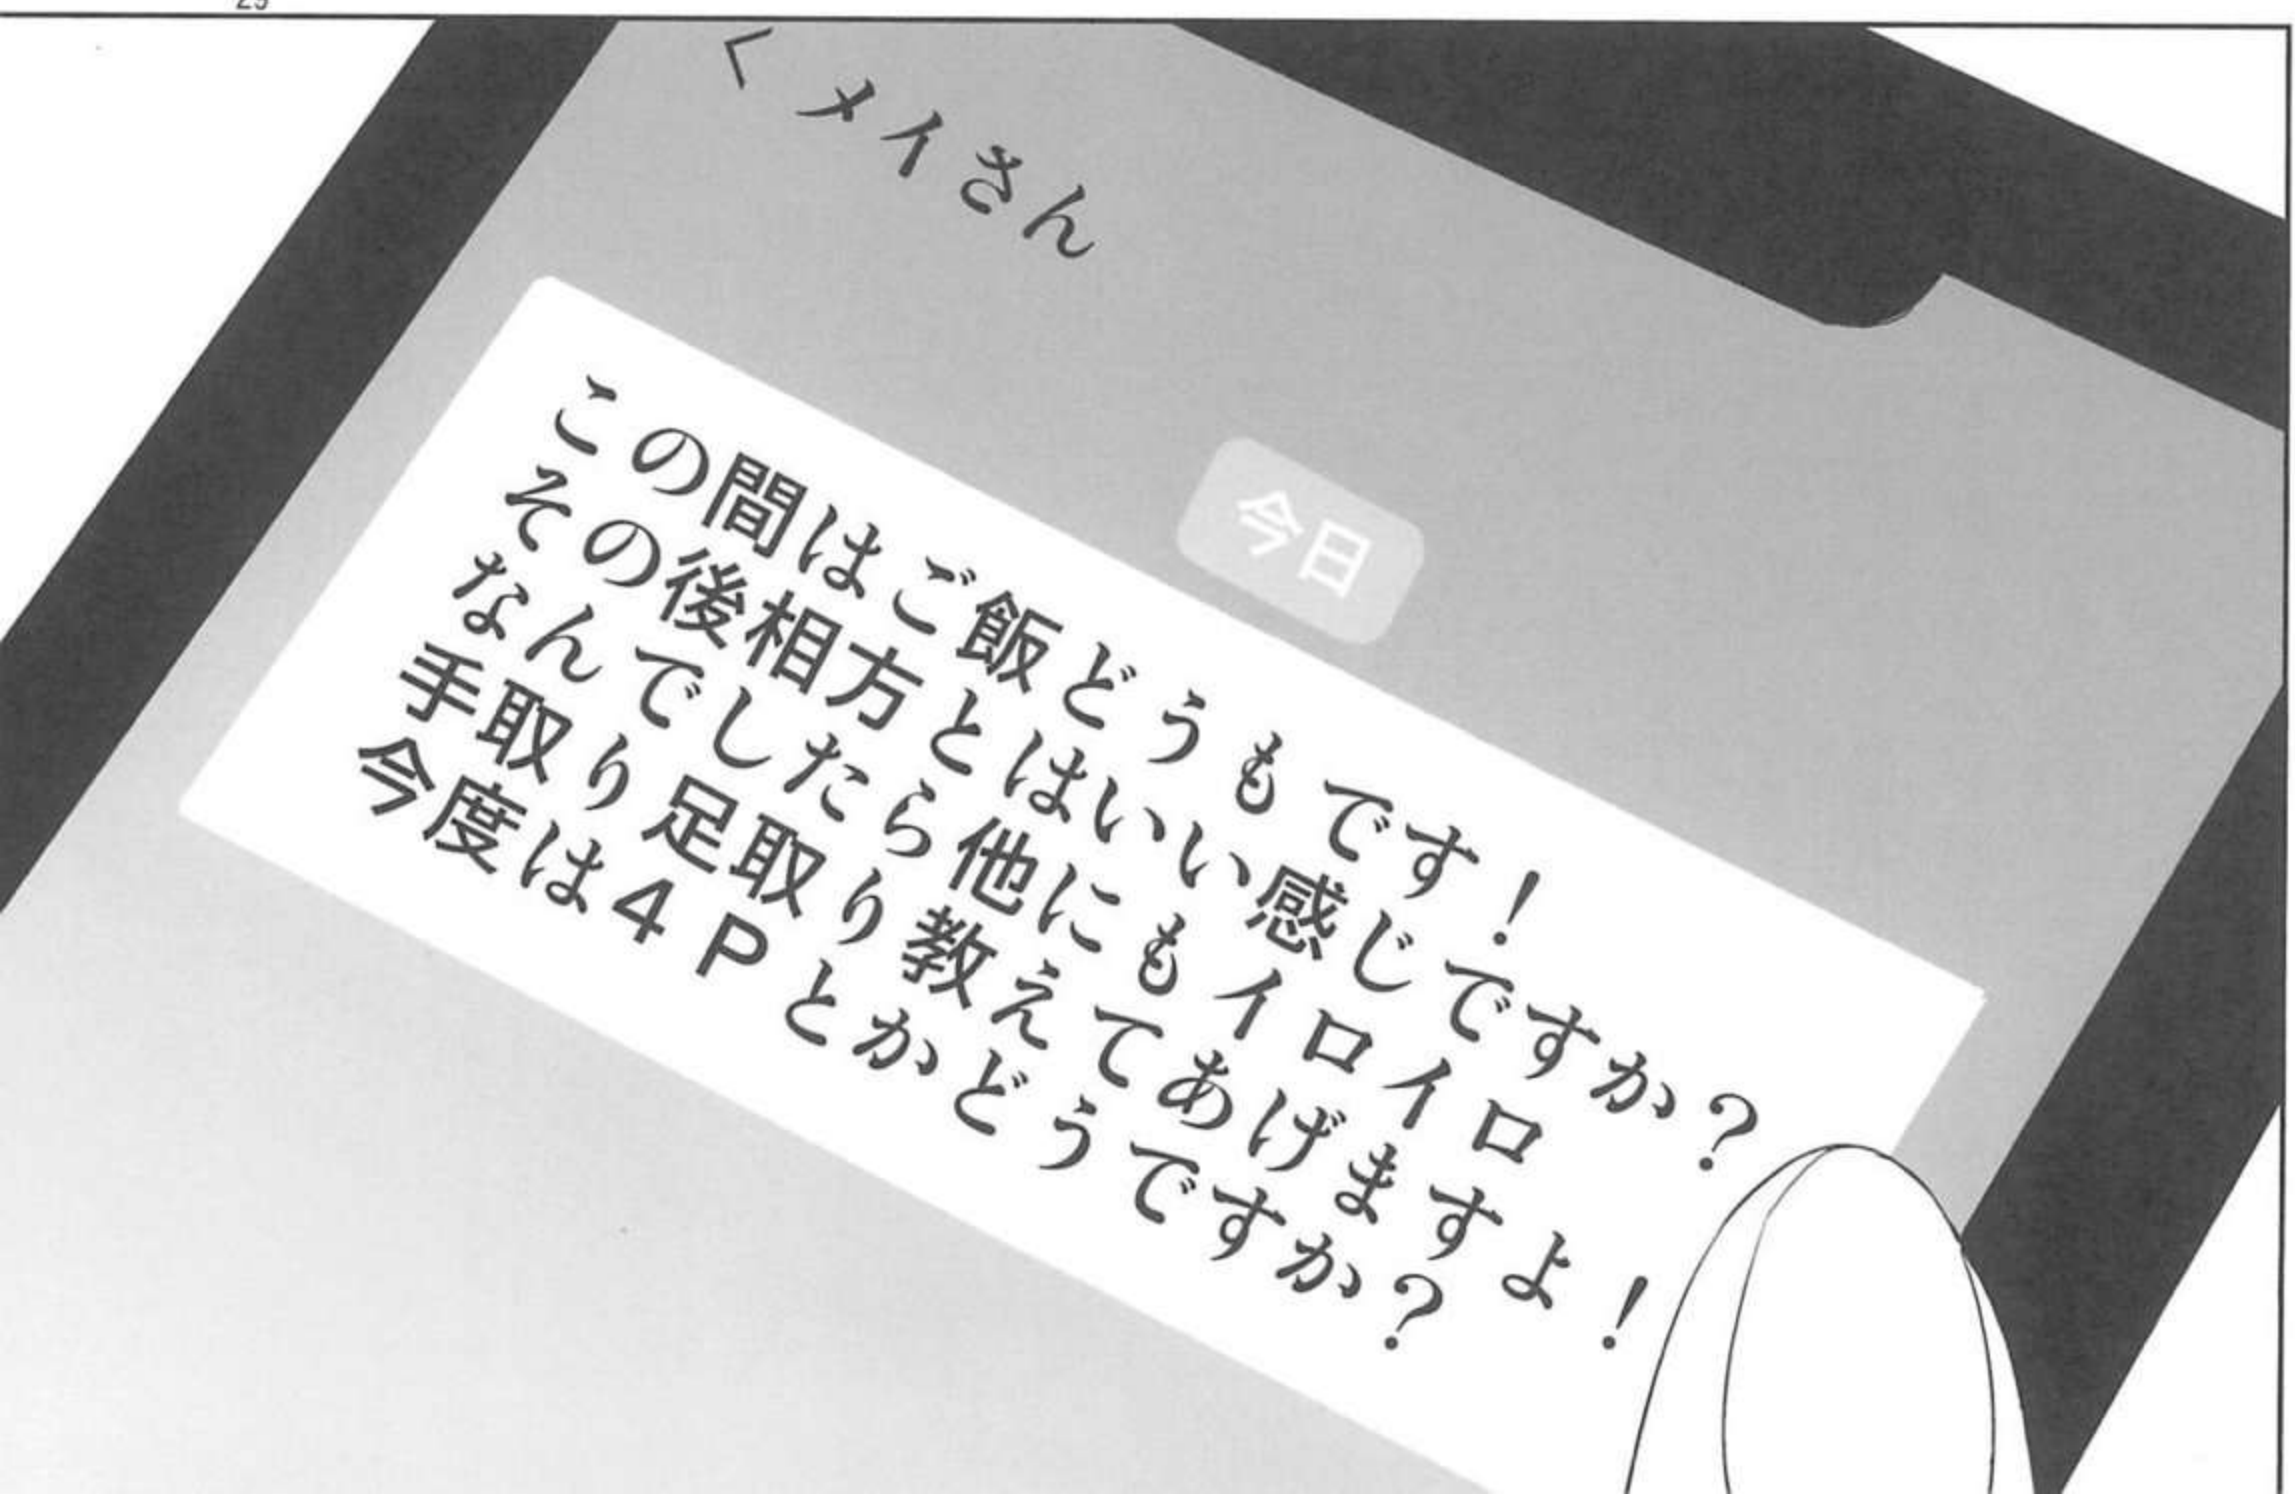 < メイさん
今日
この間はご飯どうもです！
その後相方とはいい感じですか？
なんでしたら他にもイロイロ
手取り足取り教えてあげますよ！
今度は４Ｐとかどうですか？